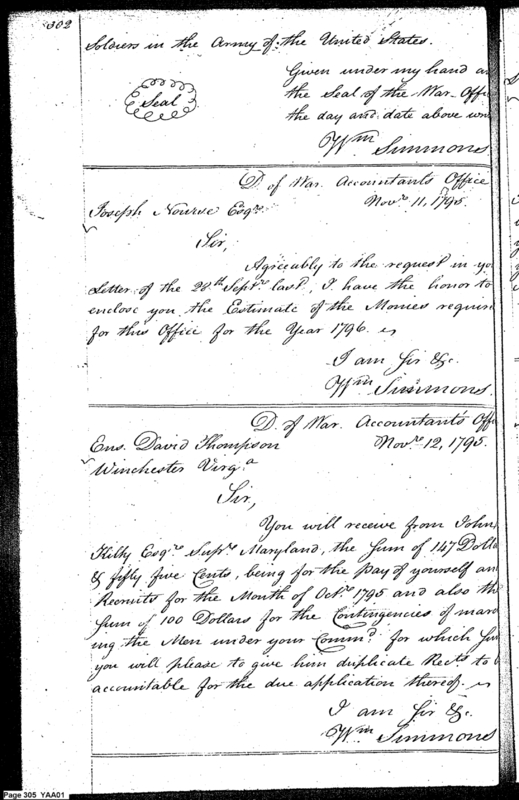 302
Soldiers in the Army of the United States.
Given under my hand a
Seal
the Seal of the War Offi
the day and date above
Wm Simmons
D. of War. Accountants Office
Joseph Nourse Esqr.
Novr. 11, 1795.
Sir,
Agreeably to the request in yo
Letter of the 28th Septr. last, I have the honor to
enclose you the Estimate of the Monies requir
for this Office for the Year 1796.
I am Sir &c.
Wm Simmons.
D. of War. Accountant's Off
Ens. David Thompson
Novr. 12, 1795.
Winchester Virga
Sir,
You will receive from John
Kilty Esqr. Supr. Maryland, the Sum of 147 Dolla
& fifty five Cents, being for the pay of yourself an
Recruits for the Month of Octr. 1795 and also th
Sum of 100 Dollars for the Contingencies of marc
ing the Men under your Commd. for which
you will please to give him duplicate Rects to
accountable for the due application thereof.
I am Sir &c.
Wm Simmons
Page 305 YAA01